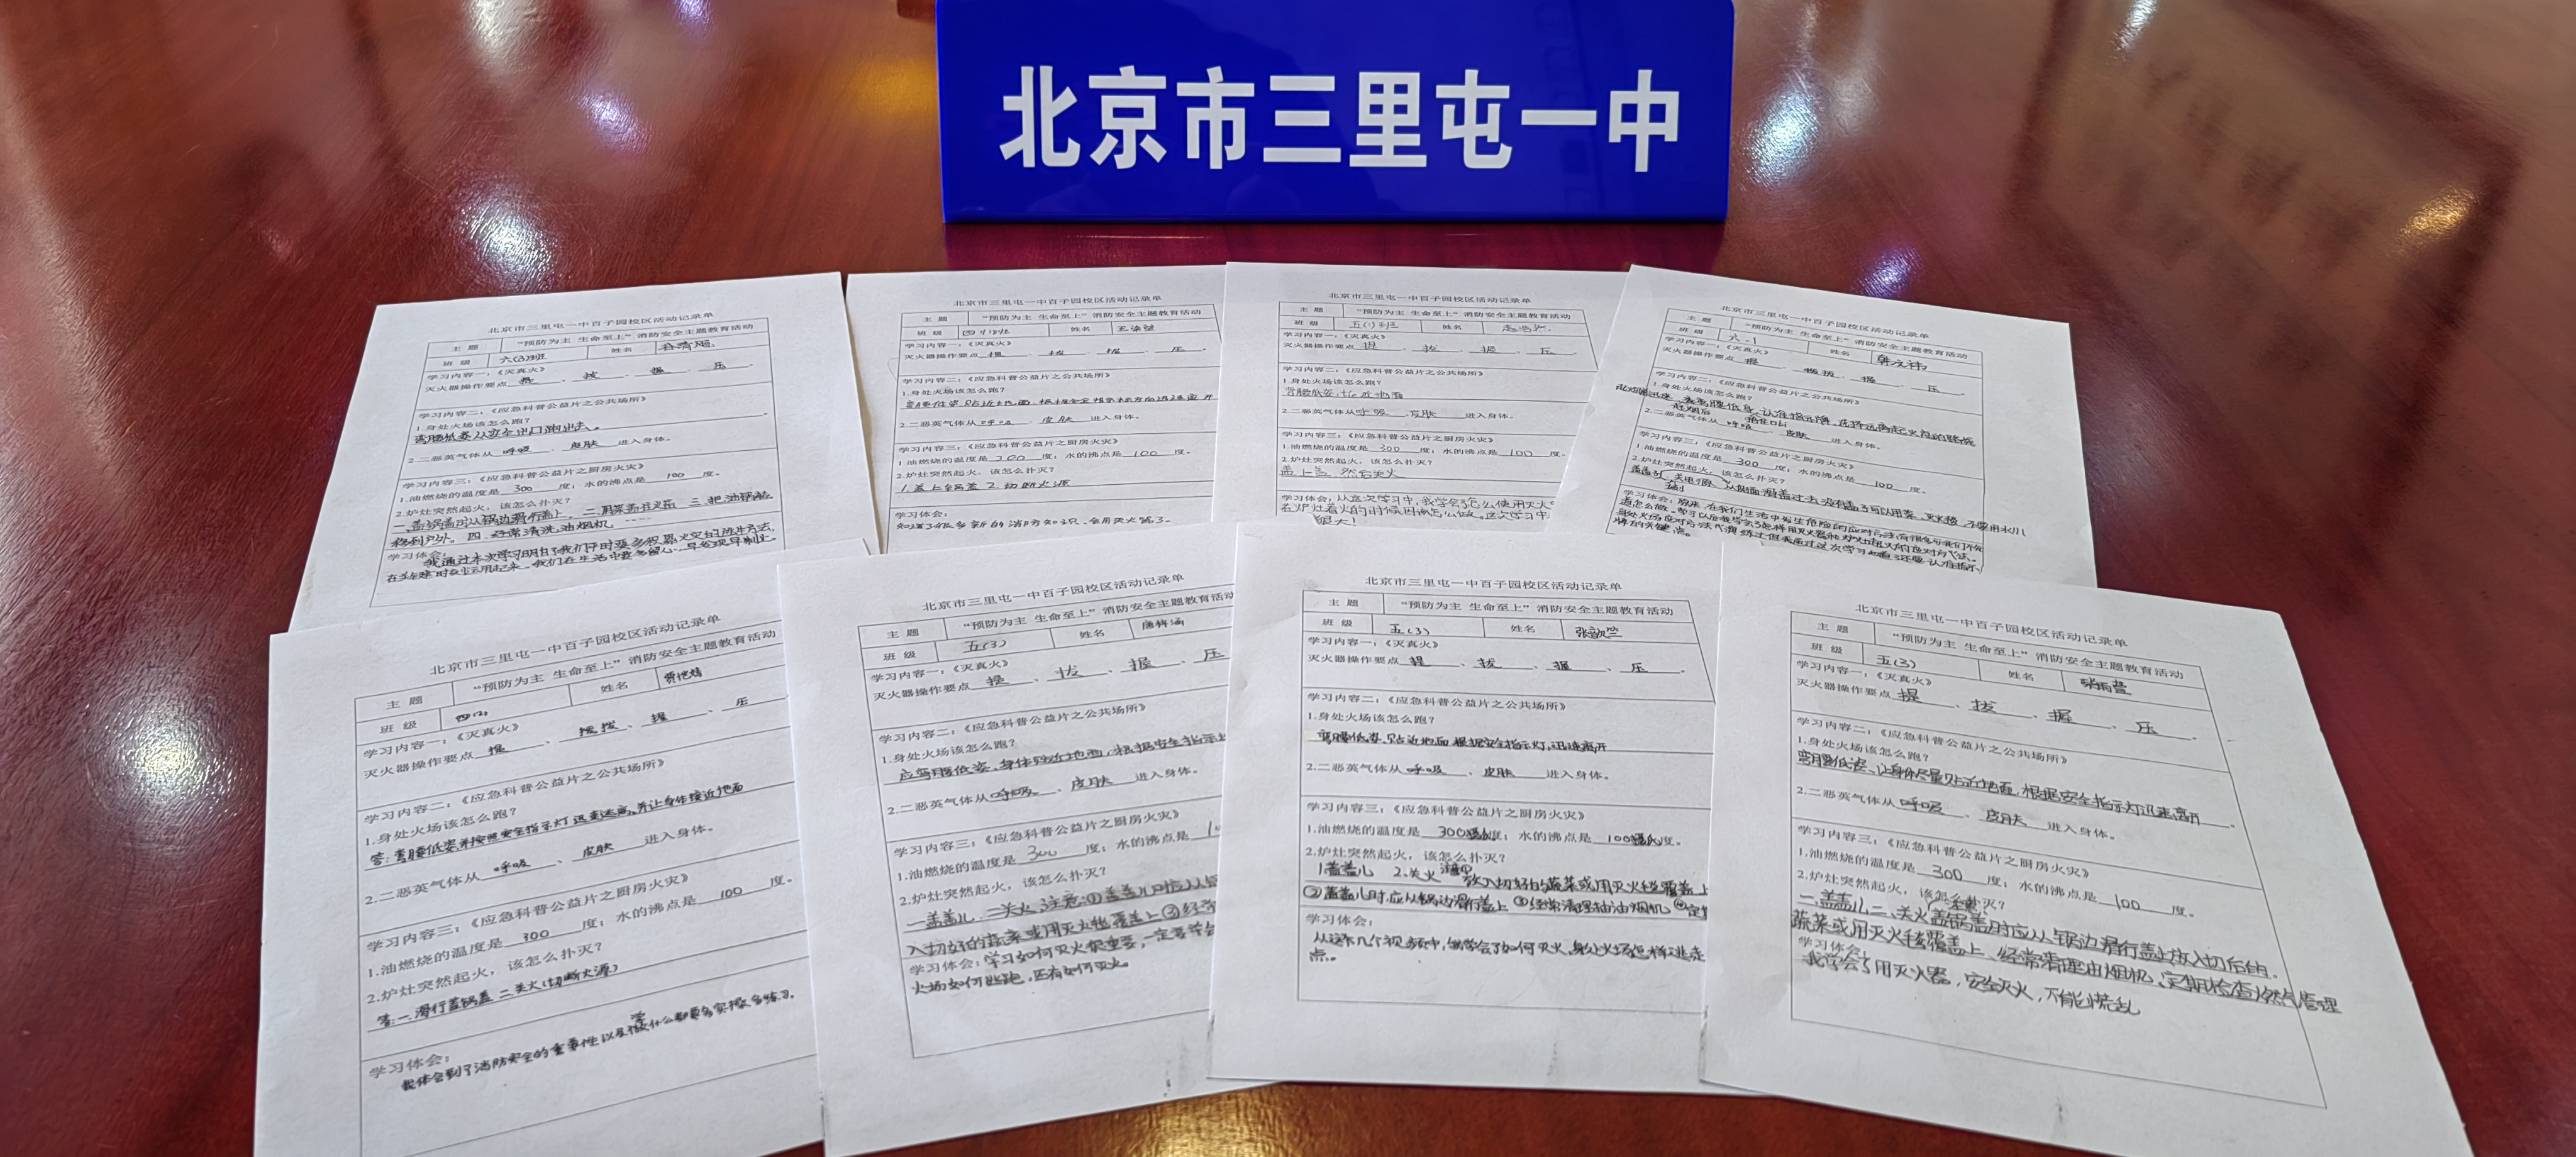 北京市三里屯一中
北京市三里屯一中百子园校区活动记录单
主 题 “预防为主 生命至上”消防安全主题教育活动
班 级 六(3)班 姓名
学习内容一：《灭真火》
灭火器操作要点 提 、 拔 、 握 、 压 。
学习内容二：《应急科普公益片之公共场所》
1.身处火场该怎么跑？
弯腰低姿从安全出口跑出去。
2.二恶英气体从 呼吸 、 皮肤 进入身体。
学习内容三：《应急科普公益片之厨房火灾》
1.油燃烧的温度是 300 度；水的沸点是 100 度。
2.炉灶突然起火，该怎么扑灭？
一、盖锅盖时从锅边滑行盖上。二、用 三、把油锅
移到户外。四、经常清洗油烟机
学习体会：
我通过本次学习明白了我们平时要多积累火灾的逃生方法，
我们在生活中要多留心，早发现早制止。
北京市三里屯一中百子园校区活动记录单
主 题 “预防为主 生命至上”消防安全主题教育活动
班 级 四(1)班 姓名
学习内容一：《灭真火》
灭火器操作要点 提 、 拔 、 握 、 压 。
学习内容二：《应急科普公益片之公共场所》
1.身处火场该怎么跑？
弯腰低姿，贴近地面，根据安全指示的方向迅速离开
2.二恶英气体从 呼吸 、 皮肤 进入身体。
学习内容三：《应急科普公益片之厨房火灾》
1.油燃烧的温度是 300 度；水的沸点是 100 度。
2.炉灶突然起火，该怎么扑灭？
1.盖上锅盖 2.切断火源
学习体会：
知道了很多新的消防知识，会用灭火器了。
北京市三里屯一中百子园校区活动记录单
主 题 “预防为主 生命至上”消防安全主题教育活动
班 级 五(1)班 姓名
学习内容一：《灭真火》
灭火器操作要点 提 、 拔 、 握 、 压 。
学习内容二：《应急科普公益片之公共场所》
1.身处火场该怎么跑？
弯腰低姿，贴近地面
2.二恶英气体从 呼吸 、 皮肤 进入身体。
学习内容三：《应急科普公益片之厨房火灾》
1.油燃烧的温度是 300 度；水的沸点是 100 度。
2.炉灶突然起火，该怎么扑灭？
盖上盖，然后关火
学习体会：从这次学习中，我学会了怎么使用灭火
在炉灶着火的时候因该怎么做。这次学习中
很大！
北京市三里屯一中百子园校区活动记录单
主 题 “预防为主 生命至上”消防安全主题教育活动
班 级 六.1 姓名
学习内容一：《灭真火》
灭火器操作要点 提 、 拔 、 握 、 压 。
学习内容二：《应急科普公益片之公共场所》
1.身处火场该怎么跑？
弯腰低身，认准指示牌，选择远离起火点的路线
2.二恶英气体从 呼吸 、 皮肤 进入身体。
学习内容三：《应急科普公益片之厨房火灾》
1.油燃烧的温度是 300 度；水的沸点是 100 度。
2.炉灶突然起火，该怎么扑灭？
学习体会：
牌的关键点。
北京市三里屯一中百子园校区活动记录单
主 题 “预防为主 生命至上”消防安全主题教育活动
班 级 四(2) 姓名
学习内容一：《灭真火》
灭火器操作要点 提 、 拨 、 握 、 压
学习内容二：《应急科普公益片之公共场所》
1.身处火场该怎么跑？
答：弯腰低姿，并按照安全指示灯迅速逃离，并让身体接近地面
2.二恶英气体从 呼吸 、 皮肤 进入身体。
学习内容三：《应急科普公益片之厨房火灾》
1.油燃烧的温度是 300 度；水的沸点是 100 度。
2.炉灶突然起火，该怎么扑灭？
答：一.滑行盖锅盖 二.关火（切断火源）
学习体会：
我体会到了消防安全的重要性以及学什么都要多实操多练习。
北京市三里屯一中百子园校区活动记录单
主 题 “预防为主 生命至上”消防安全主题教育活动
班 级 五(3) 姓名
学习内容一：《灭真火》
灭火器操作要点 提 、 拔 、 握 、 压
学习内容二：《应急科普公益片之公共场所》
1.身处火场该怎么跑？
应弯腰低姿，身体贴近地面，根据安全指示
2.二恶英气体从 呼吸 、 皮肤 进入身体。
学习内容三：《应急科普公益片之厨房火灾》
1.油燃烧的温度是 300 度；水的沸点是
2.炉灶突然起火，该怎么扑灭？
一.盖盖儿.二关火.注意:①盖盖儿时应从锅
入切好的蔬菜或用灭火毯覆盖上③经常
学习体会：学习如何灭火很重要，一定要学会
火场如何逃跑，还有如何灭火。
北京市三里屯一中百子园校区活动记录单
主 题 “预防为主 生命至上”消防安全主题教育活动
班 级 五(3) 姓名 张歆竺
学习内容一：《灭真火》
灭火器操作要点 提 、 拔 、 握 、 压 。
学习内容二：《应急科普公益片之公共场所》
1.身处火场该怎么跑？
弯腰低姿，贴近地面，根据安全指示灯，迅速离开
2.二恶英气体从 呼吸 、 皮肤 进入身体。
学习内容三：《应急科普公益片之厨房火灾》
1.油燃烧的温度是 300摄氏度；水的沸点是 100摄氏度。
2.炉灶突然起火，该怎么扑灭？
1.盖盖儿 2.关火 注意① 放入切好的蔬菜或用灭火毯覆盖上
②盖盖儿时应从锅边滑行盖上 ③经常清理抽油烟机 ④定
学习体会：
从这几个视频中，我学会了如何灭火，身处火场怎样逃走
点。
北京市三里屯一中百子园校区活动记录单
主 题 “预防为主 生命至上”消防安全主题教育活动
班 级 五(3) 姓名
学习内容一：《灭真火》
灭火器操作要点 提 、 拔 、 握 、 压 。
学习内容二：《应急科普公益片之公共场所》
1.身处火场该怎么跑？
弯腰低姿、让身体尽量贴近地面，根据安全指示灯迅速离开
2.二恶英气体从 呼吸 、 皮肤 进入身体。
学习内容三：《应急科普公益片之厨房火灾》
1.油燃烧的温度是 300 度；水的沸点是 100 度。
2.炉灶突然起火，该怎么扑灭？
一、盖盖儿二、关火盖锅盖时应从锅边滑行盖上放入切后的
蔬菜或用灭火毯覆盖上，经常清理油烟机、定期检查燃气管理
学习体会：
我学会了用灭火器，安全灭火，不能慌乱